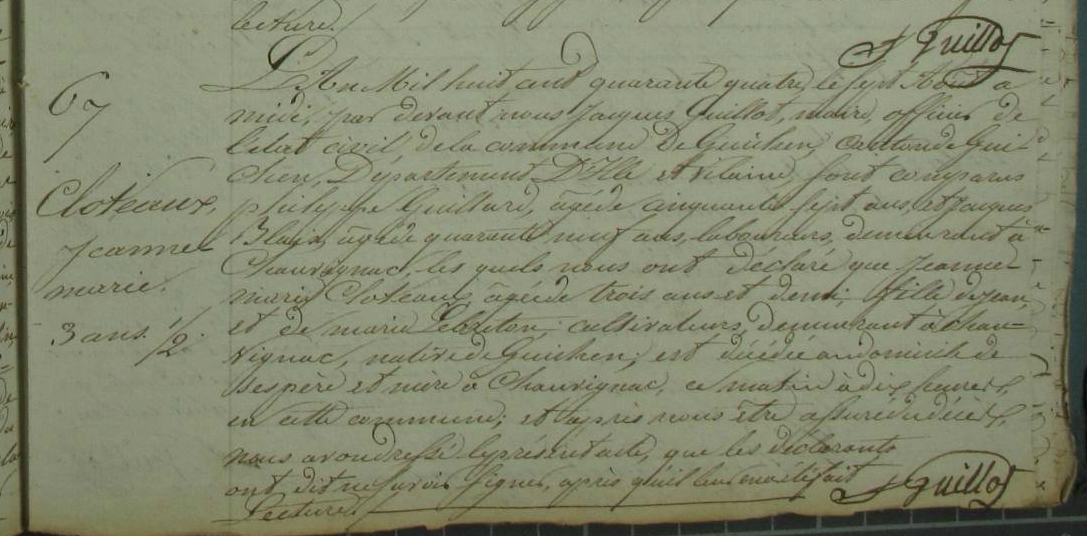 lecture.
J Guillot
67
Cloteaux,
Jeanne
marie.
3 ans 1/2.
L'An Mil huit cent quarante quatre, le sept Aout a
midi, par devant nous Jacques Guillot, maire, officier de
l'état civil de la commune De Guichen, Canton de Gui-
chen, Département D'Ille et Vilaine, sont comparus
philippe Guillard, âgé de cinquante sept ans, et Jacques
Blaix, âgé de quarante neuf ans, laboureurs, demeurant à
Chauvignac, les quels nous ont déclaré que Jeanne
marie Cloteaux, âgée de trois ans et demi, fille de Jean,
et de marie Lebreton, cultivateurs, demeurant à chau-
vignac, native de Guichen, est décédée au domicile de
ses père et mère à Chauvignac, ce matin à dix heures,
en cette commune; et après nous être assuré du décès,
nous avons dressé le présent acte, que les déclarants
ont dit ne savoir signer, après qu'il leur en a été fait
Lecture.
J Guillot